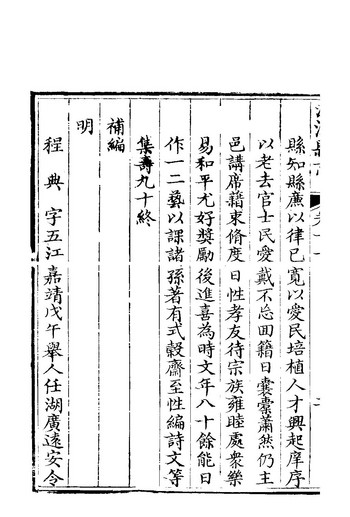 縣知縣廉以律己寬以愛民培植人才興起庠序
以老去官士民愛戴不忘回籍日囊橐蕭然仍主
邑講席籍束脩度日性孝友待宗族雍睦處衆樂
易和平尤好獎勵後進喜為時文年八十餘能日
作一二藝以課諸孫著有式穀齋至性編詩文等
集壽九十終
補編
明
程典字五江嘉靖戊午舉人任湖廣遠安令